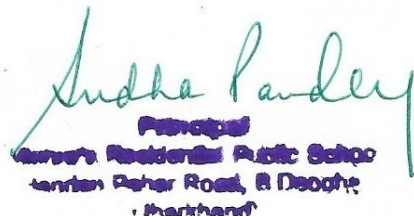 Sudha Pandey
Principal
Residential Public School
Road,
Jharkhand